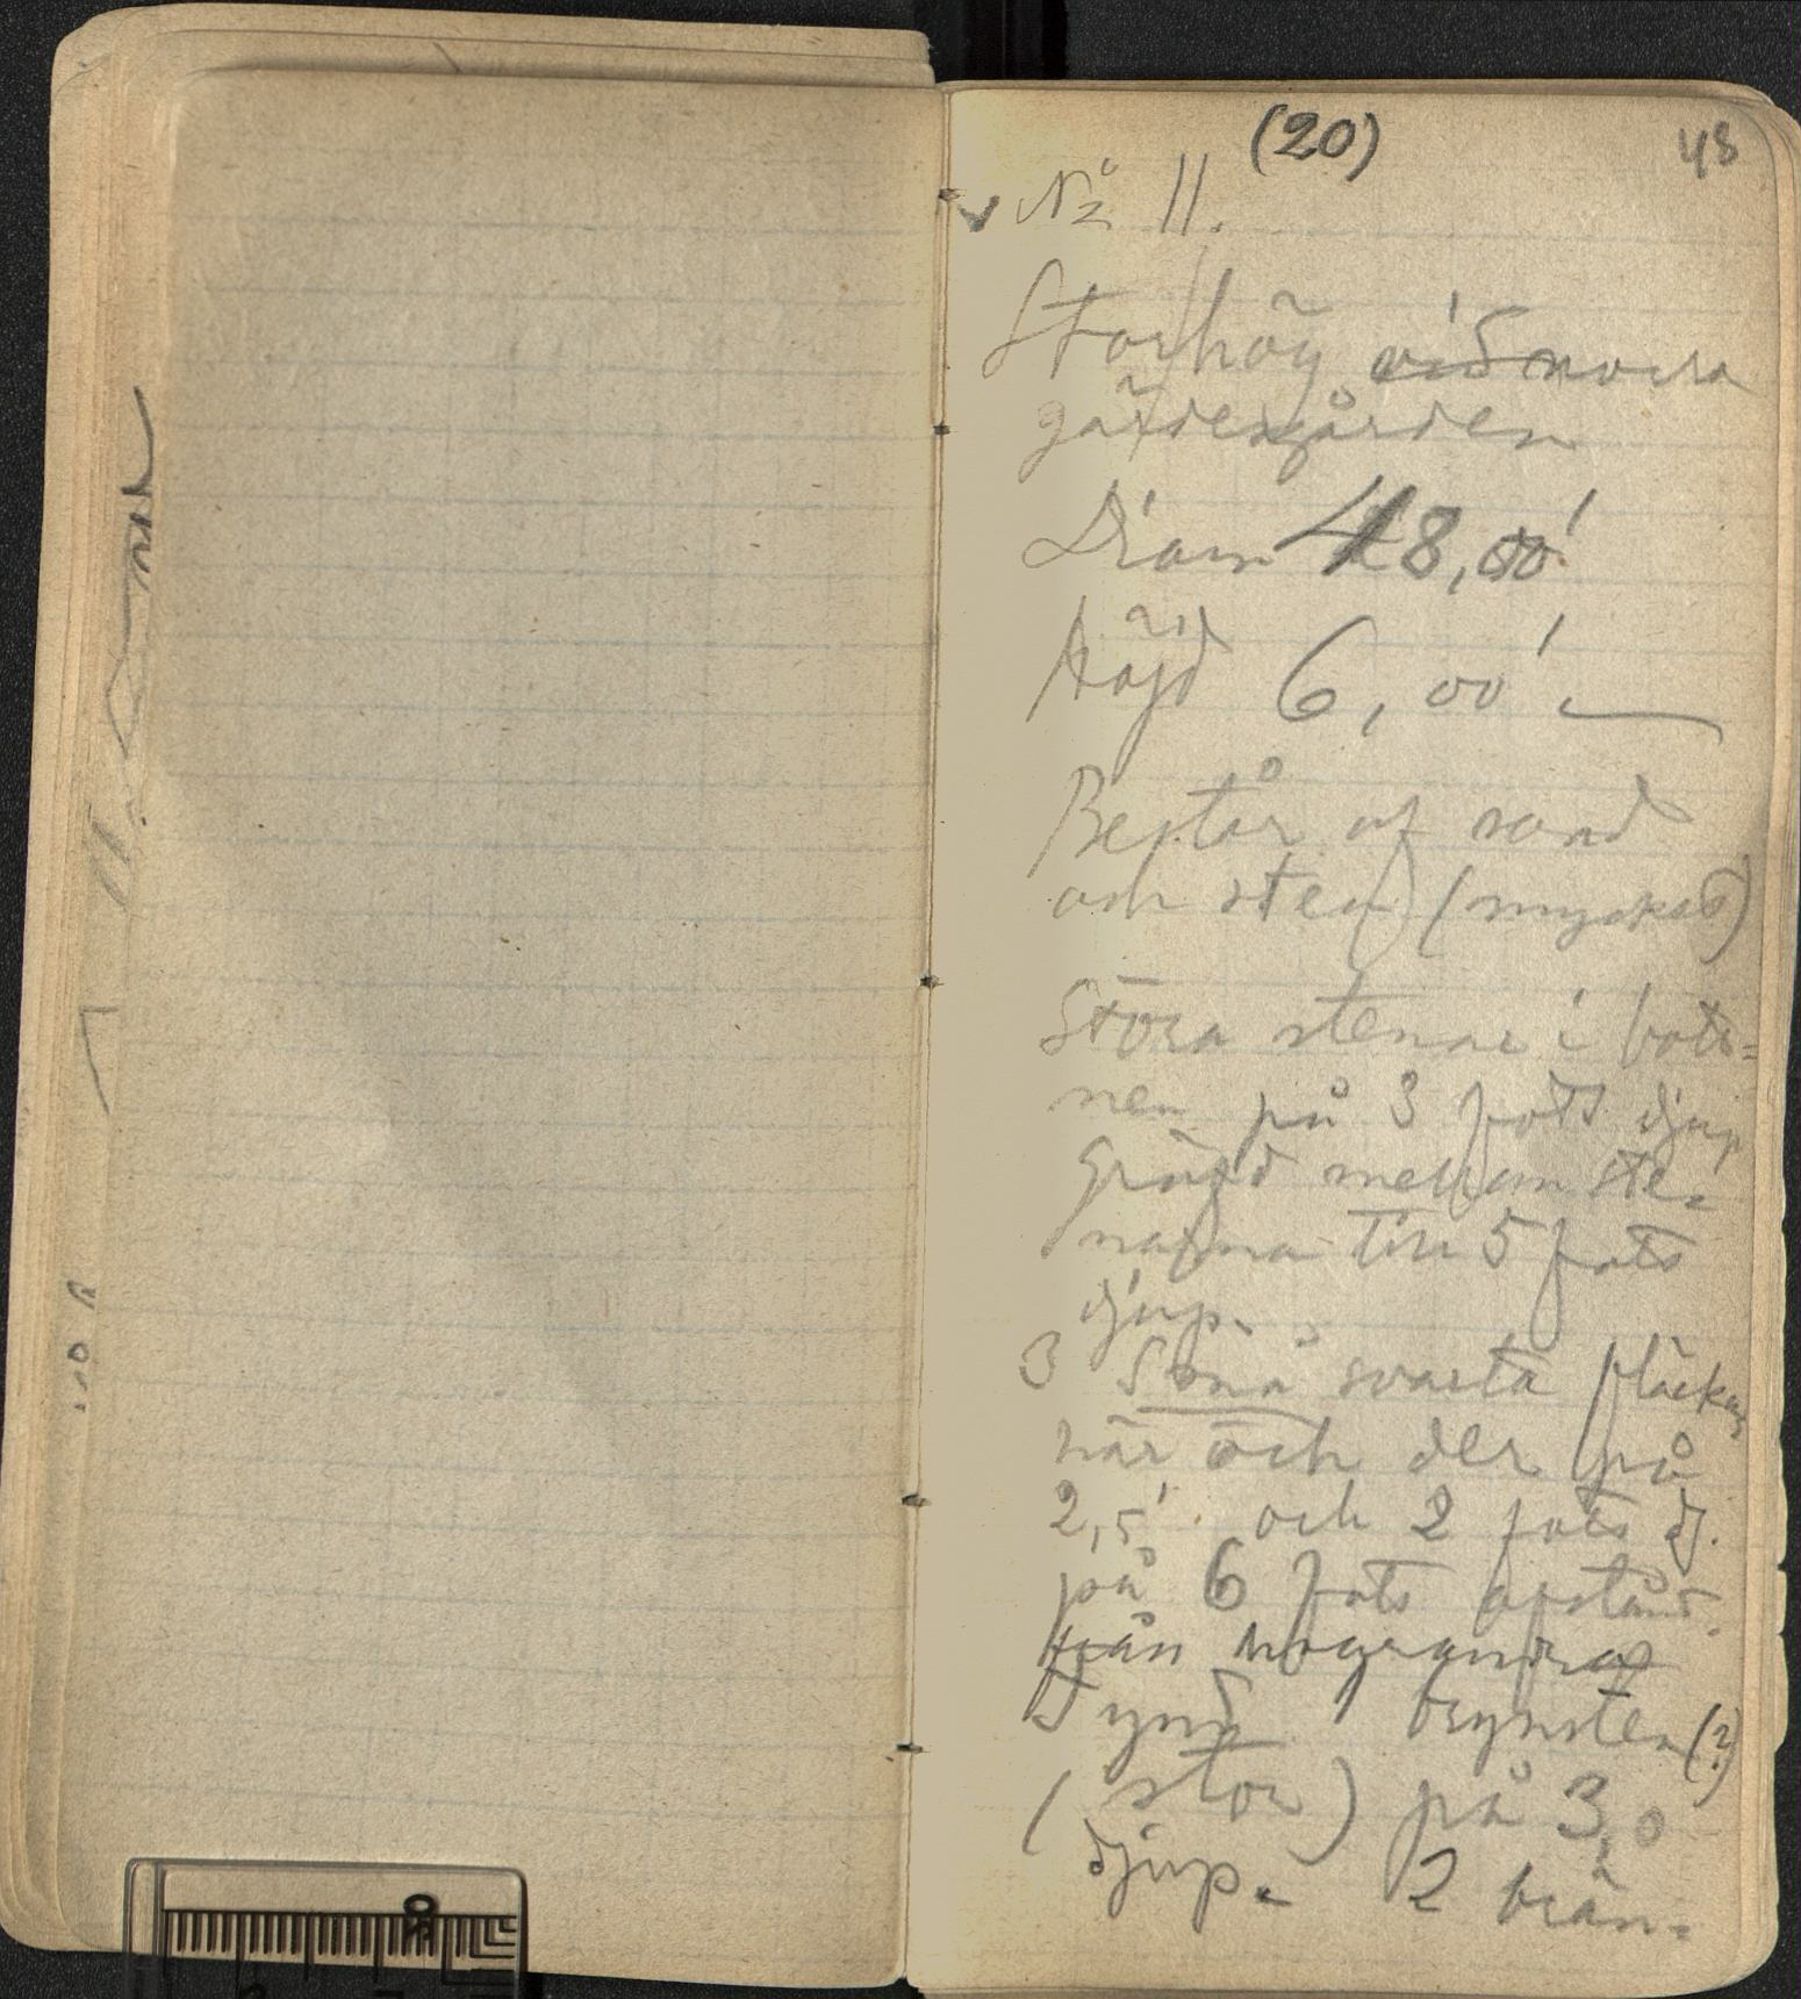 (20)
48
√ No 11.
Storhög vid norra
gärdesgården
Diam 48,00'
Höjd 6,00'
Består af sand
och sten (myckes)
Stora stenar i bott-
nen på 3 fots djup
Gräfd mellan ste-
narna till 5 fots
djup.
3 Små svarta fläckar
här och der på
2,5' och 2 fots dj.
på 6 fots afstånd
från hvarandra
Fynd 1 brynsten (?)
(stor) på 3,0
djup. 2 brän-